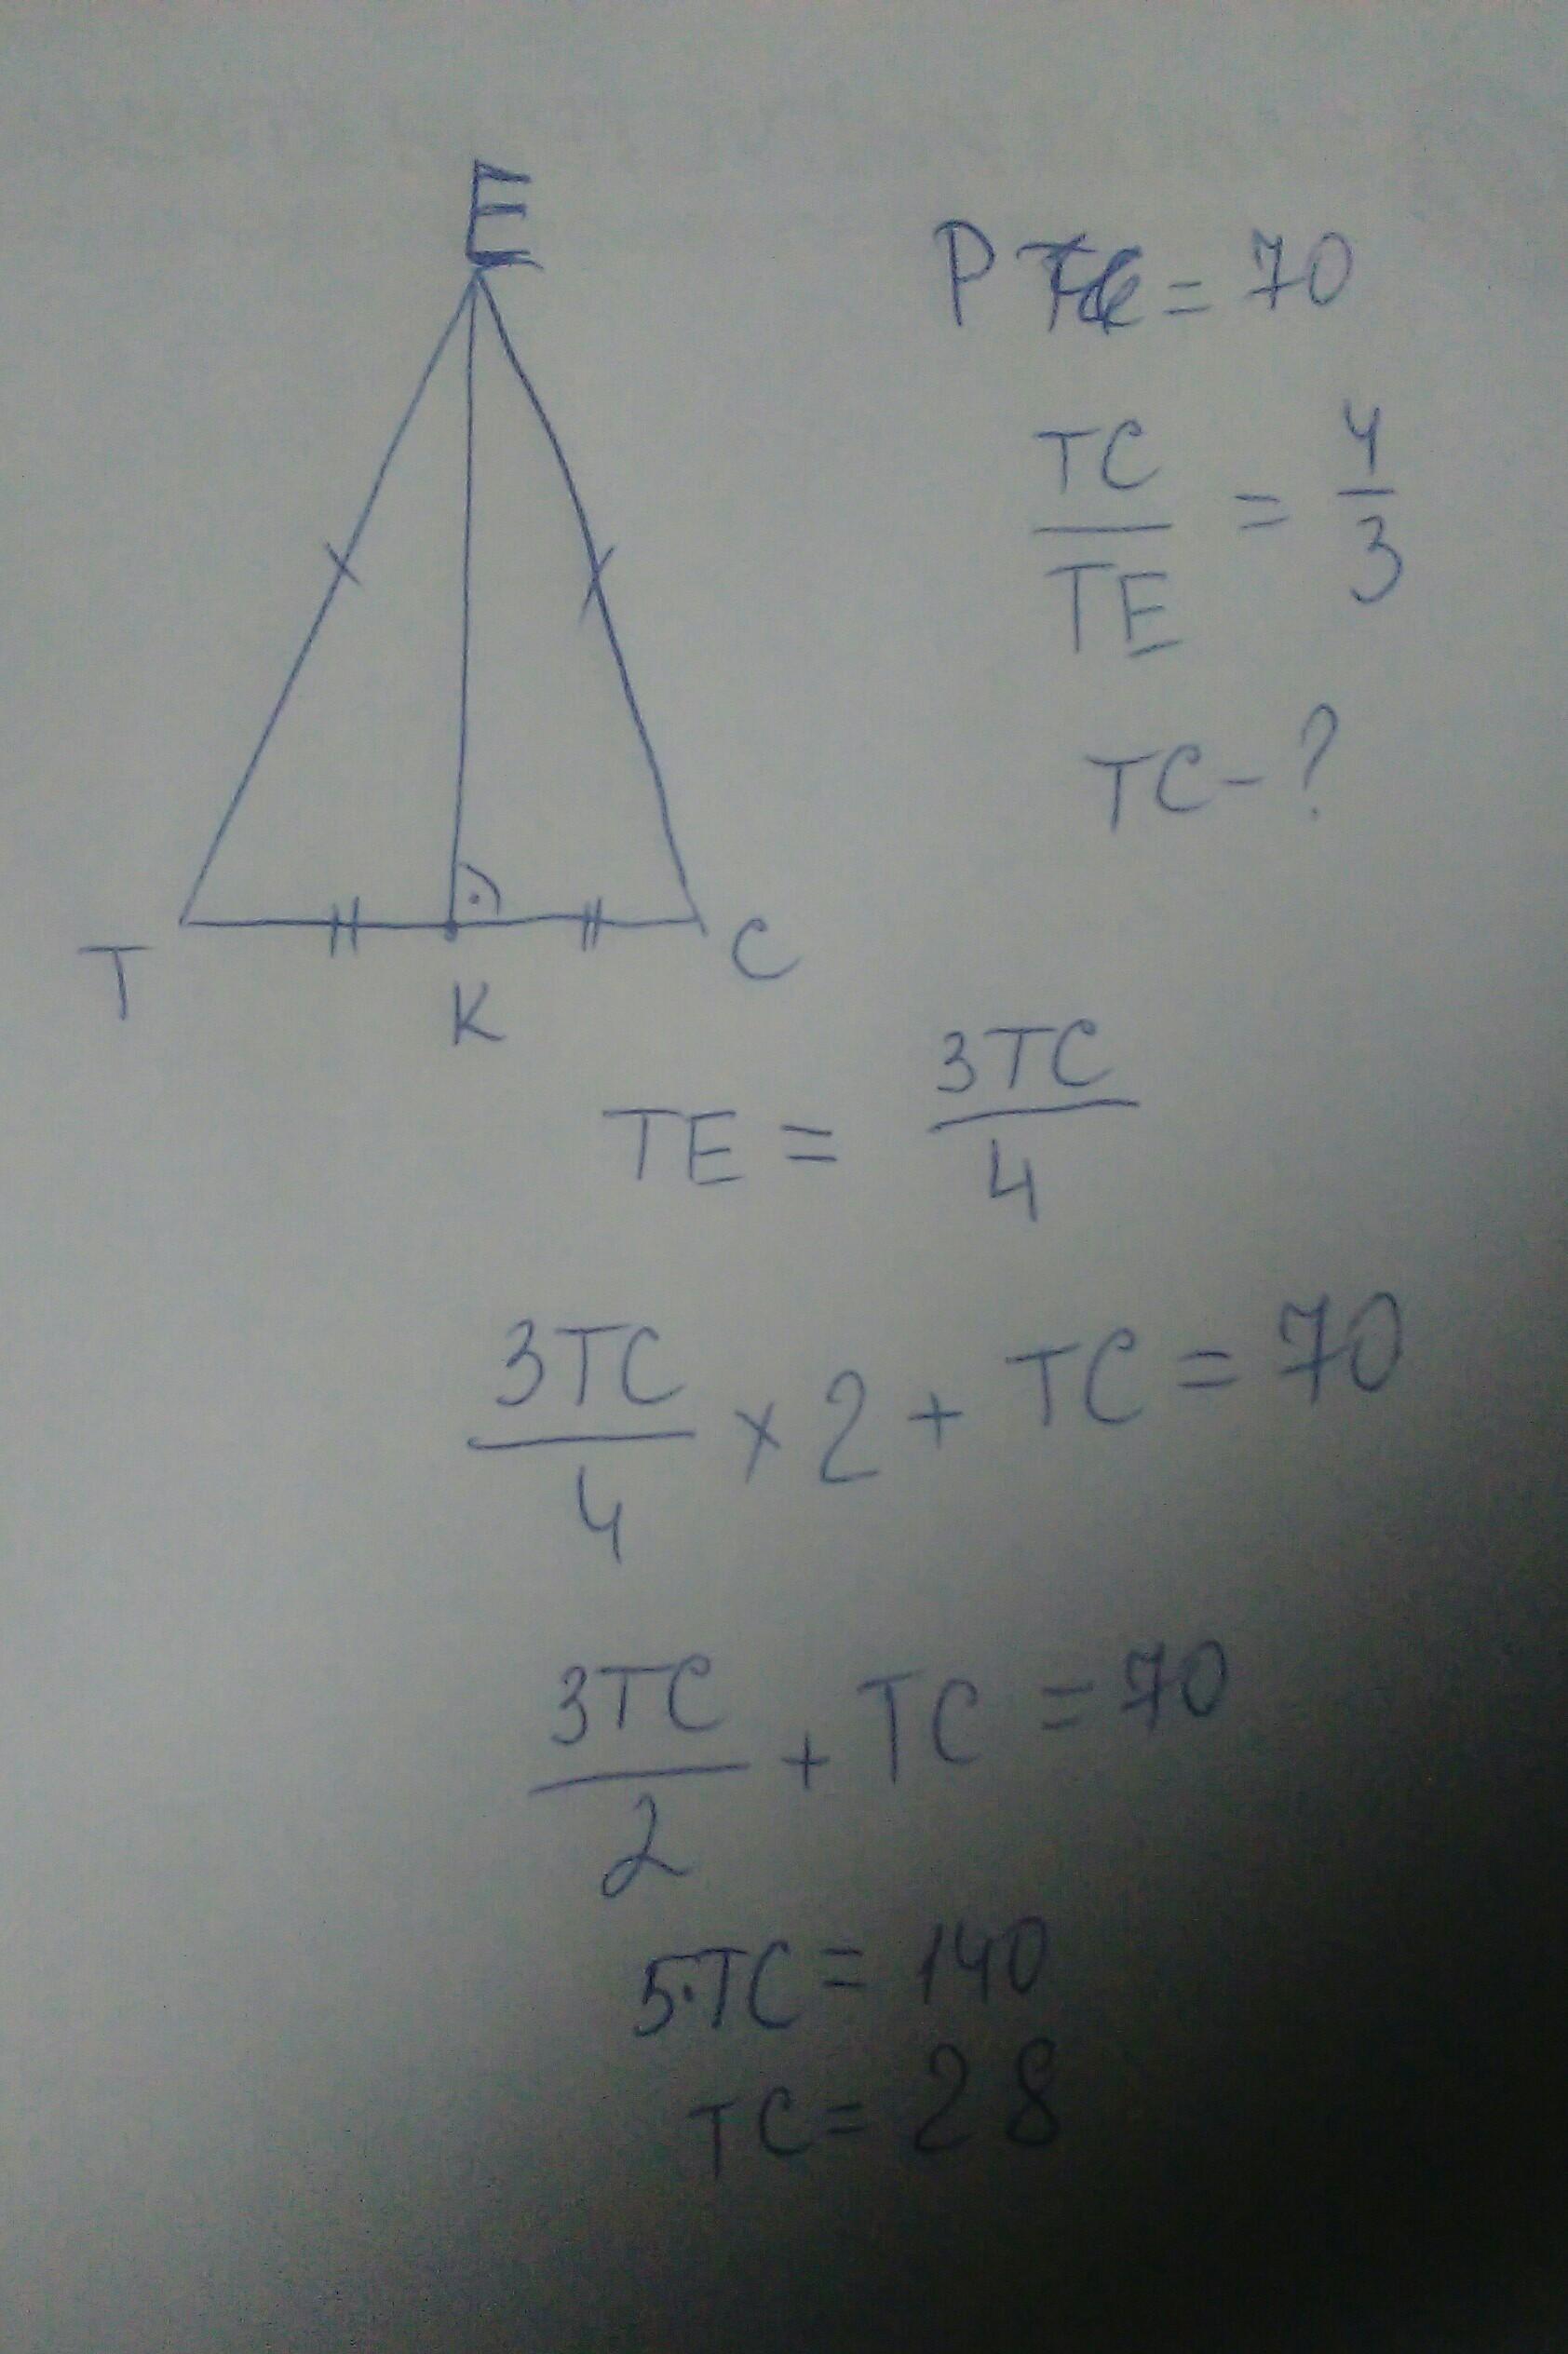 E
P = 70
TC/TE = 4/3
TC - ?
T K C
TE = 3TC/4
3TC/4 × 2 + TC = 70
3TC/2 + TC = 70
5·TC = 140
TC = 28